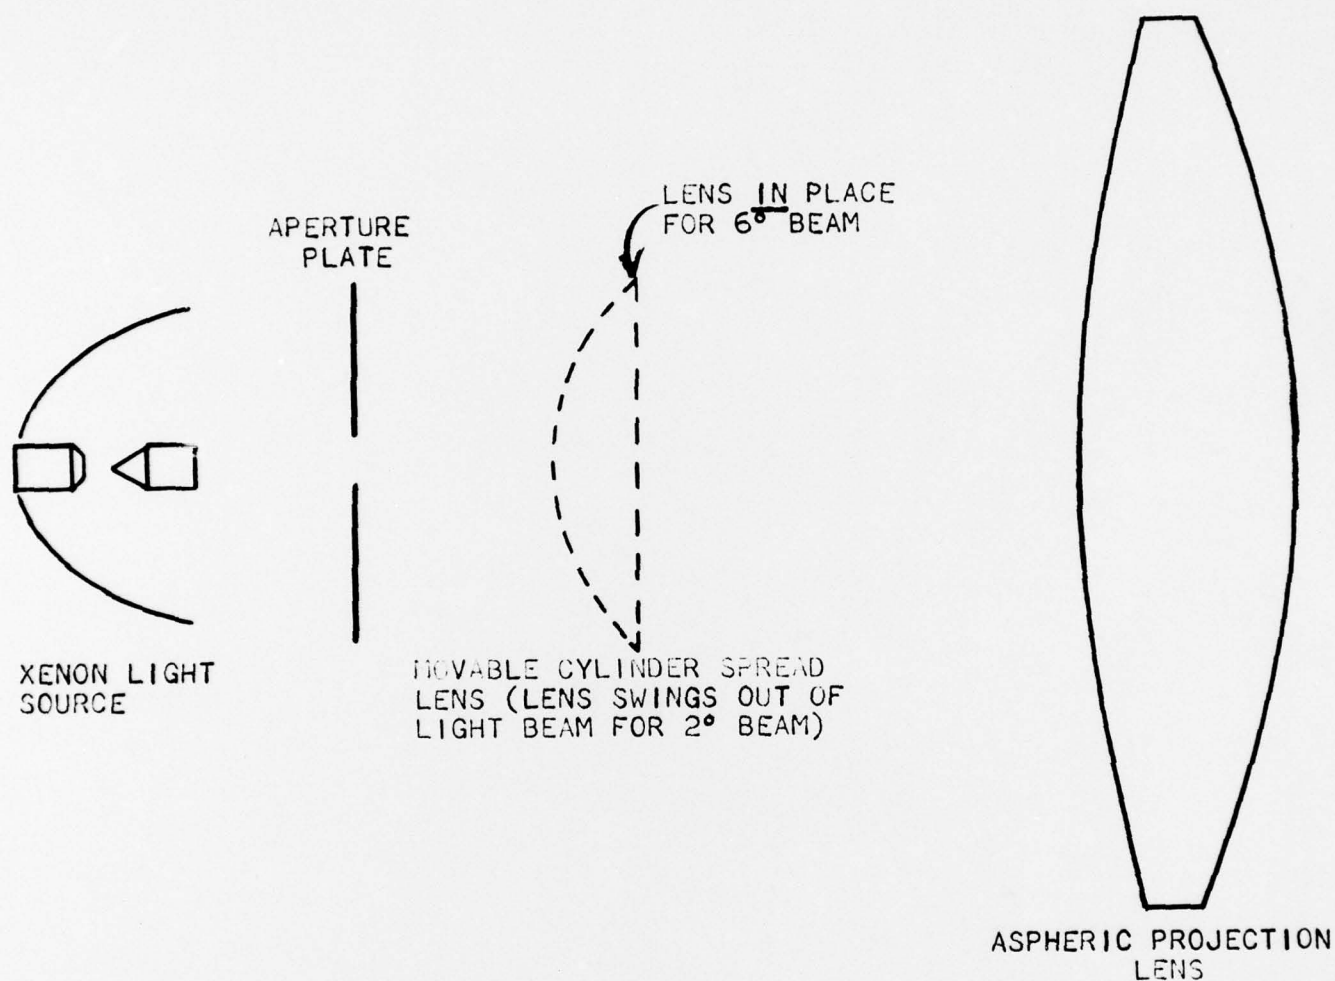 APERTURE
PLATE
LENS IN PLACE
FOR 6° BEAM
XENON LIGHT
SOURCE
MOVABLE CYLINDER SPREAD
LENS (LENS SWINGS OUT OF
LIGHT BEAM FOR 2° BEAM)
ASPHERIC PROJECTION
LENS